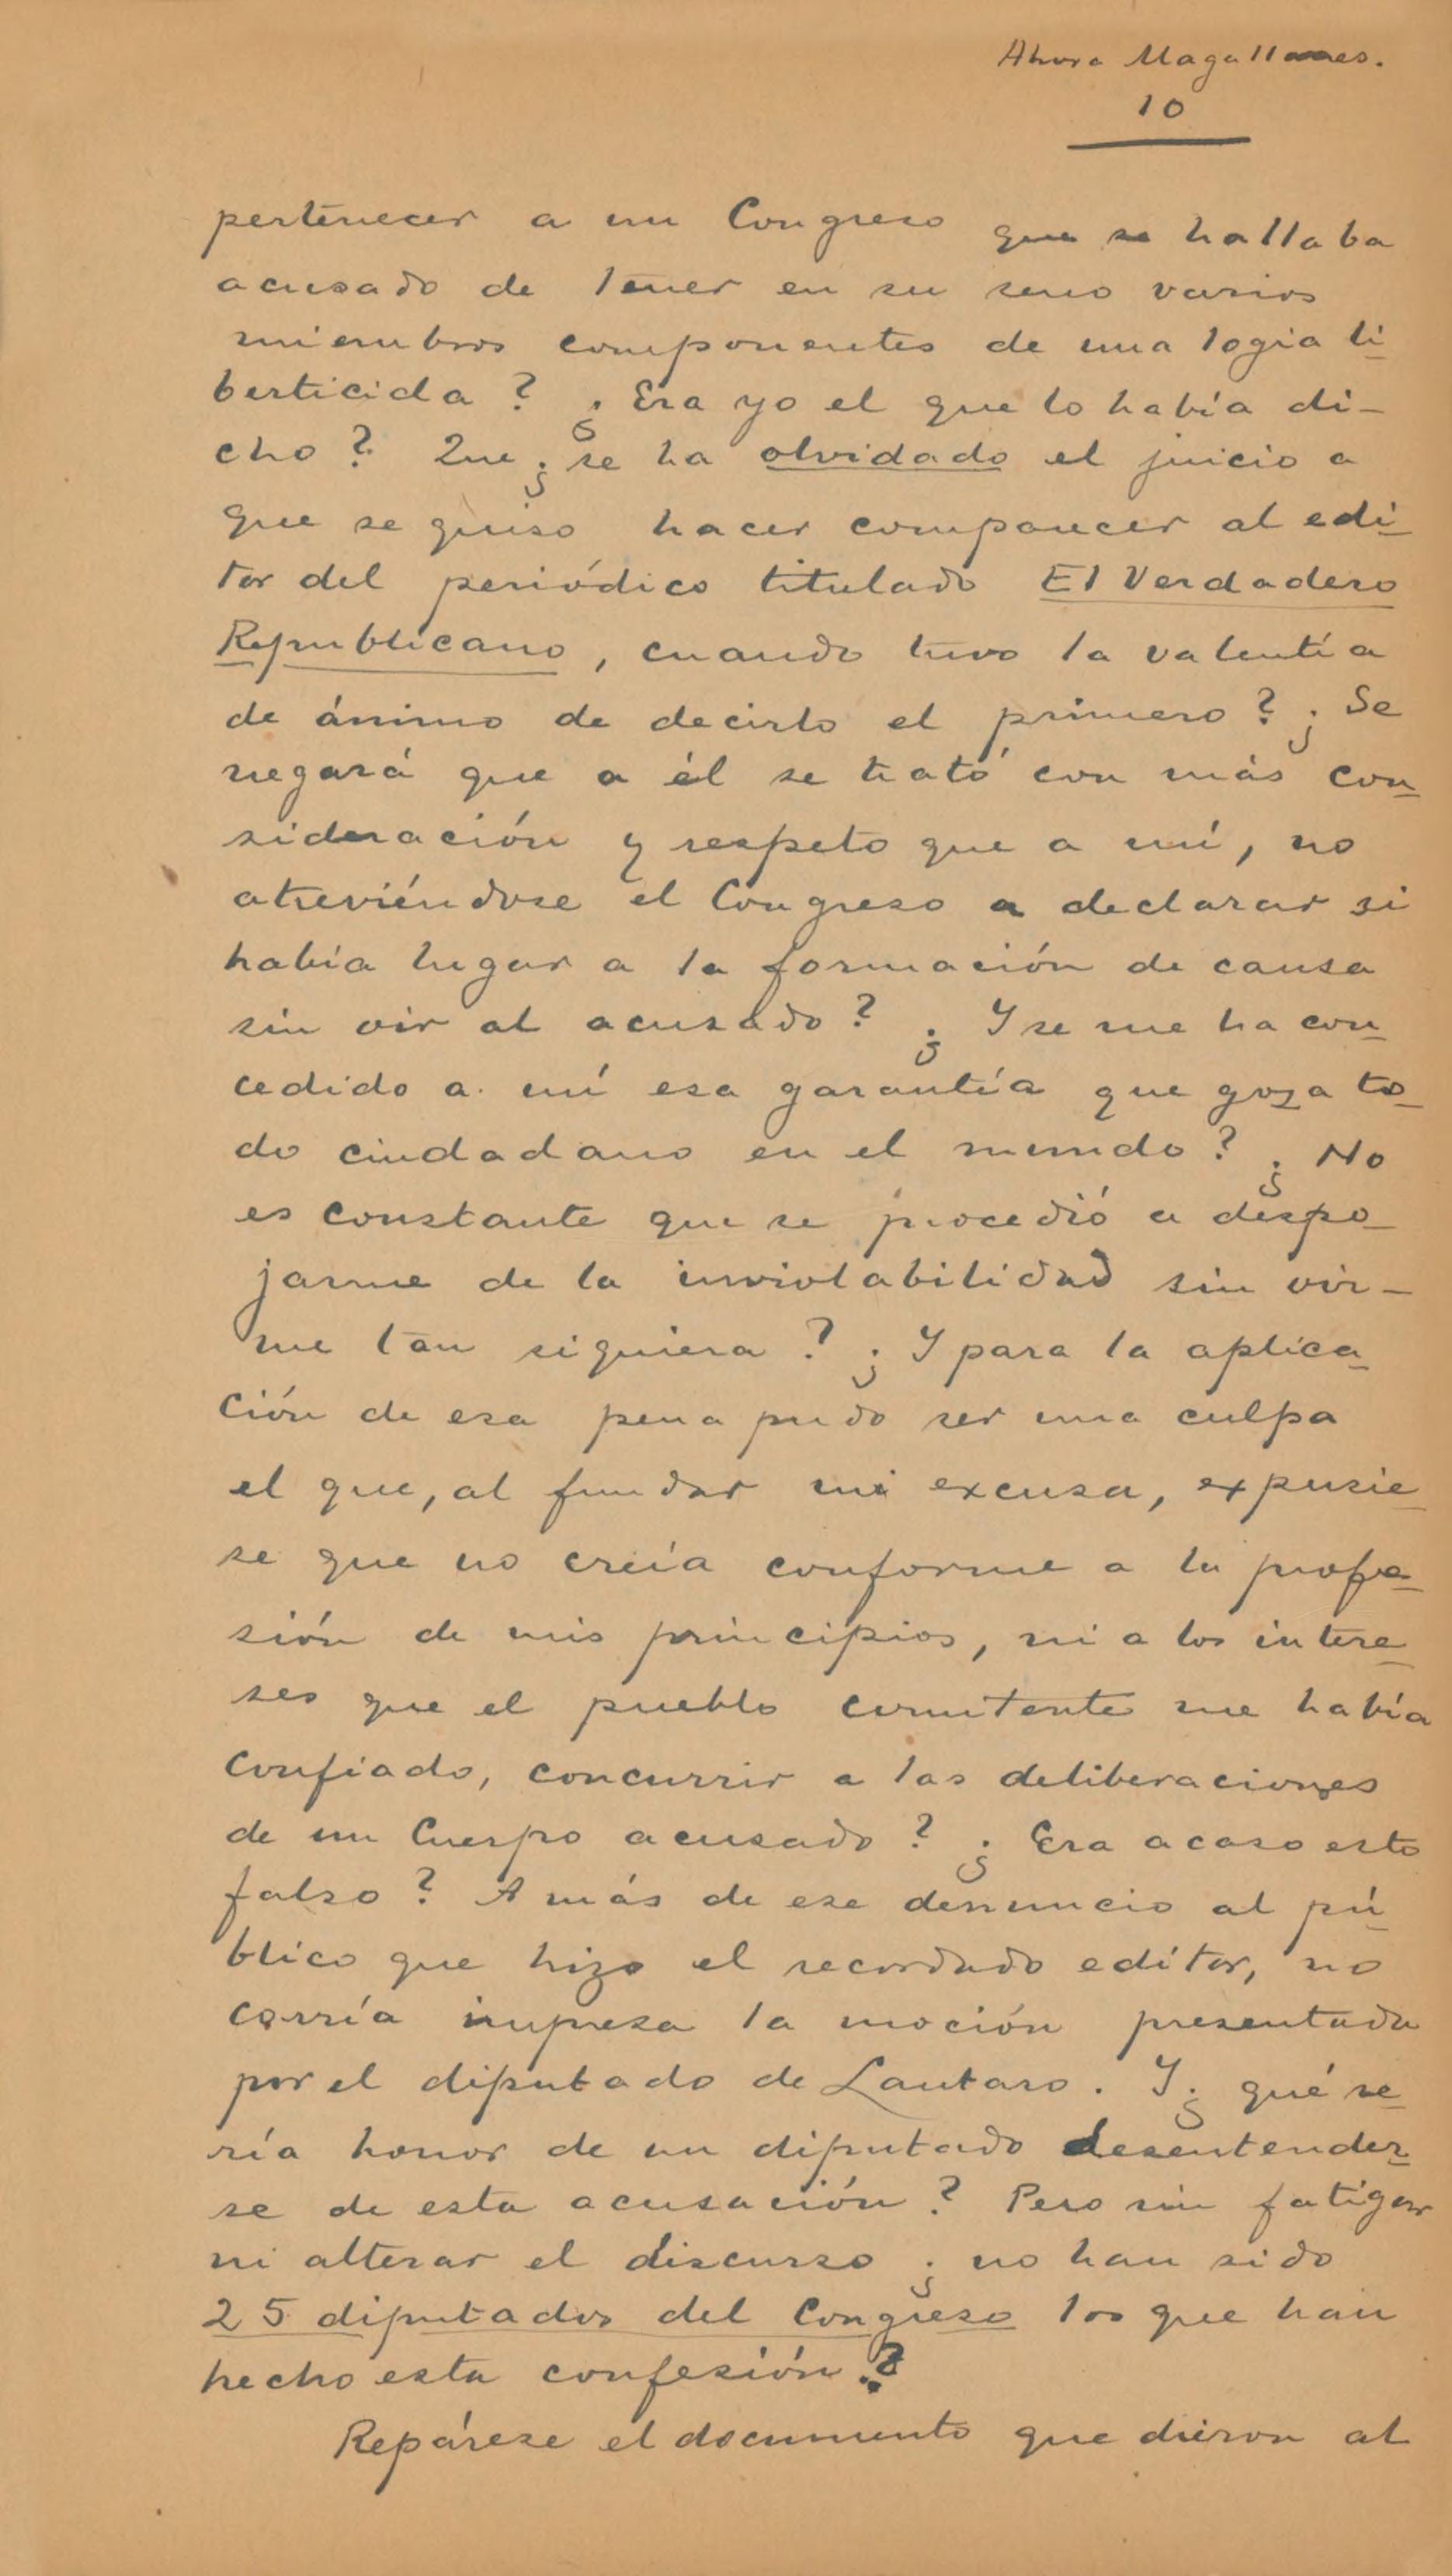 Ahora Magallanes.
10
pertenecer a un Congreso que se hallaba
acusado de tener en su seno varios
miembros componentes de una logia li-
berticida? ¿Era yo el que lo había di-
cho? Que ¿se ha olvidado el juicio a
que se quiso hacer comparecer al edi-
tor del periódico titulado El Verdadero
Republicano, cuando tuvo la valentía
de ánimo de decirlo el primero? ¿Se
negará que a él se trató con más con-
sideración y respeto que a mí, no
atreviéndose el Congreso a declarar si
había lugar a la formación de causa
sin oir al acusado? ¿Y se me ha con-
cedido a mí esa garantía que goza to-
do ciudadano en el mundo? ¿No
es constante que se procedió a despo-
jarme de la inviolabilidad sin oir-
me tan siquiera? ¿Y para la aplica-
ción de esa pena pudo ser una culpa
el que, al fundar mi excusa, expusie-
se que no creía conforme a la profe-
sión de mis principios, ni a los intere-
ses que el pueblo comitente me había
confiado, concurrir a las deliberaciones
de un Cuerpo acusado? ¿Era acaso esto
falso? A más de ese denuncio al pú-
blico que hizo el recordado editor, no
corría impresa la moción presentada
por el diputado de Lautaro. Y ¿qué se-
ría honor de un diputado desentender-
se de esta acusación? Pero sin fatigar
ni alterar el discurso ¿no han sido
25 diputados del Congreso los que han
hecho esta confesión?
Repárese el documento que dieron al